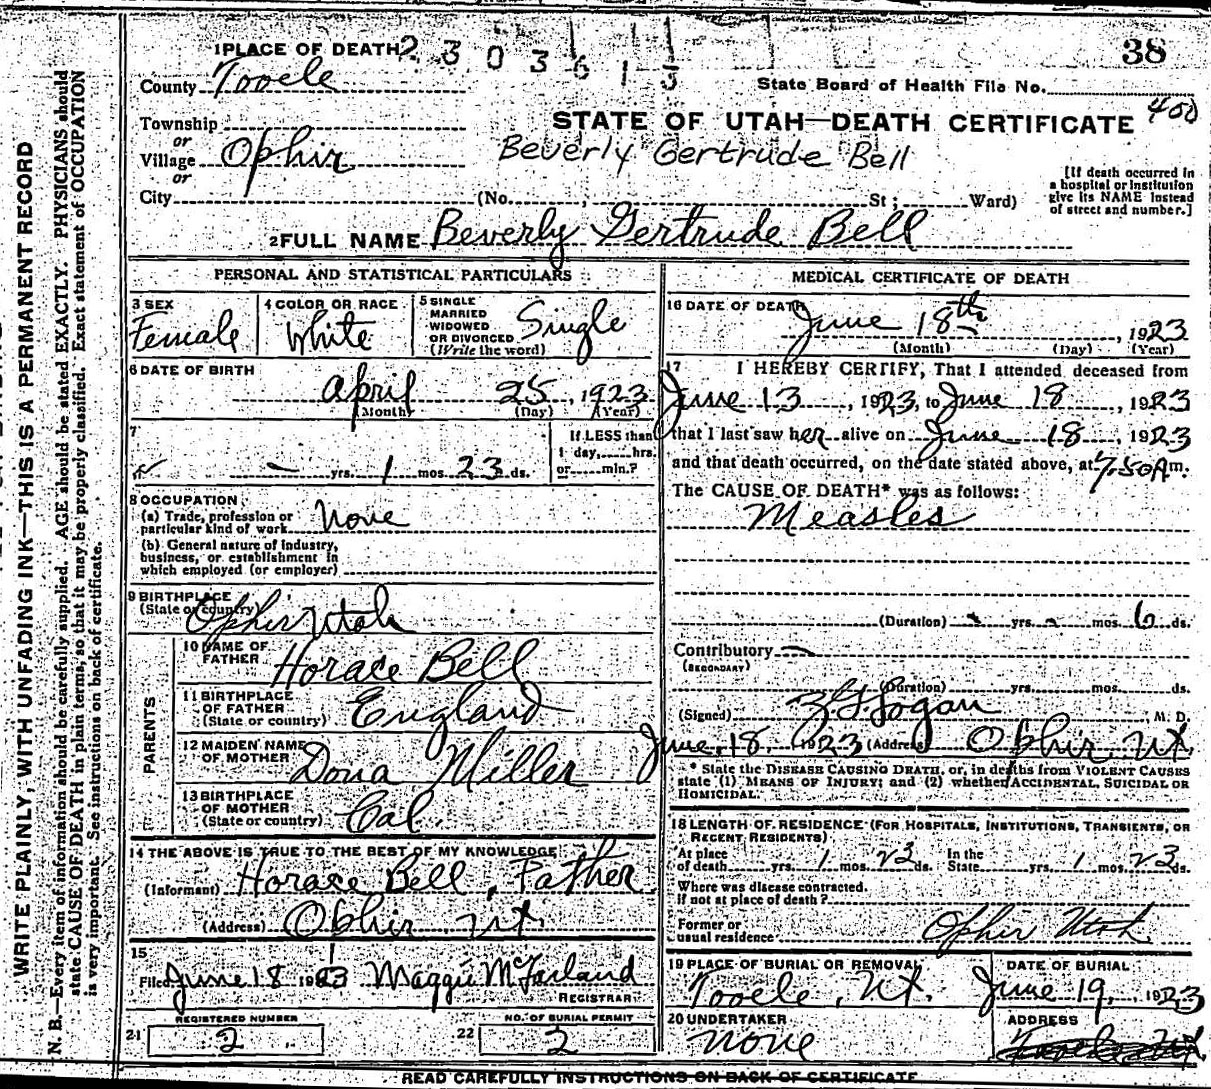 1 PLACE OF DEATH 2303613
38
County Tooele
State Board of Health File No.
400
STATE OF UTAH—DEATH CERTIFICATE
Township
or
Village Ophir
or
City (No. ; St ; Ward)
Beverly Gertrude Bell
[If death occurred in
a hospital or institution
give its NAME instead
of street and number.]
2 FULL NAME Beverly Gertrude Bell
PERSONAL AND STATISTICAL PARTICULARS
3 SEX
Female
4 COLOR OR RACE
White
5 SINGLE
MARRIED
WIDOWED
OR DIVORCED
(Write the word)
Single
6 DATE OF BIRTH
April 25, 1923
(Month) (Day) (Year)
7
— yrs. 1 mos. 23 ds.
If LESS than
1 day, hrs.
or min.?
8 OCCUPATION
(a) Trade, profession or
particular kind of work None
(b) General nature of industry,
business, or establishment in
which employed (or employer)
9 BIRTHPLACE
(State or country)
Ophir Utah
PARENTS
10 NAME OF
FATHER
Horace Bell
11 BIRTHPLACE
OF FATHER
(State or country)
England
12 MAIDEN NAME
OF MOTHER
Dona Miller
13 BIRTHPLACE
OF MOTHER
(State or country)
Cal.
14 THE ABOVE IS TRUE TO THE BEST OF MY KNOWLEDGE
(Informant) Horace Bell, Father
(Address) Ophir Ut.
15
Filed June 18 1923 Maggie McFarland
REGISTRAR
REGISTERED NUMBER
21 2
NO. OF BURIAL PERMIT
22 2
MEDICAL CERTIFICATE OF DEATH
16 DATE OF DEATH
June 18th, 1923
(Month) (Day) (Year)
17 I HEREBY CERTIFY, That I attended deceased from
June 13, 1923, to June 18, 1923
that I last saw her alive on June 18, 1923
and that death occurred, on the date stated above, at 7.50 A m.
The CAUSE OF DEATH* was as follows:
Measles
(Duration) - yrs. - mos. 6 ds.
Contributory —
(SECONDARY)
(Duration) yrs. mos. ds.
(Signed) Logan, M. D.
June 18, 1923 (Address) Ophir, Ut.
* State the DISEASE CAUSING DEATH, or, in deaths from VIOLENT CAUSES
state (1) MEANS OF INJURY; and (2) whether ACCIDENTAL, SUICIDAL OR
HOMICIDAL.
18 LENGTH OF RESIDENCE (FOR HOSPITALS, INSTITUTIONS, TRANSIENTS, OR
RECENT RESIDENTS)
At place
of death yrs. 1 mos. 23 ds.
In the
State yrs. 1 mos. 23 ds.
Where was disease contracted,
if not at place of death?
Former or
usual residence Ophir Utah
19 PLACE OF BURIAL OR REMOVAL
Tooele, Ut.
DATE OF BURIAL
June 19, 1923
20 UNDERTAKER
None
ADDRESS
READ CAREFULLY INSTRUCTIONS ON BACK OF CERTIFICATE
WRITE PLAINLY, WITH UNFADING INK—THIS IS A PERMANENT RECORD
N. B.—Every item of information should be carefully supplied. AGE should be stated EXACTLY. PHYSICIANS should
state CAUSE OF DEATH in plain terms, so that it may be properly classified. Exact statement of OCCUPATION
is very important. See instructions on back of certificate.